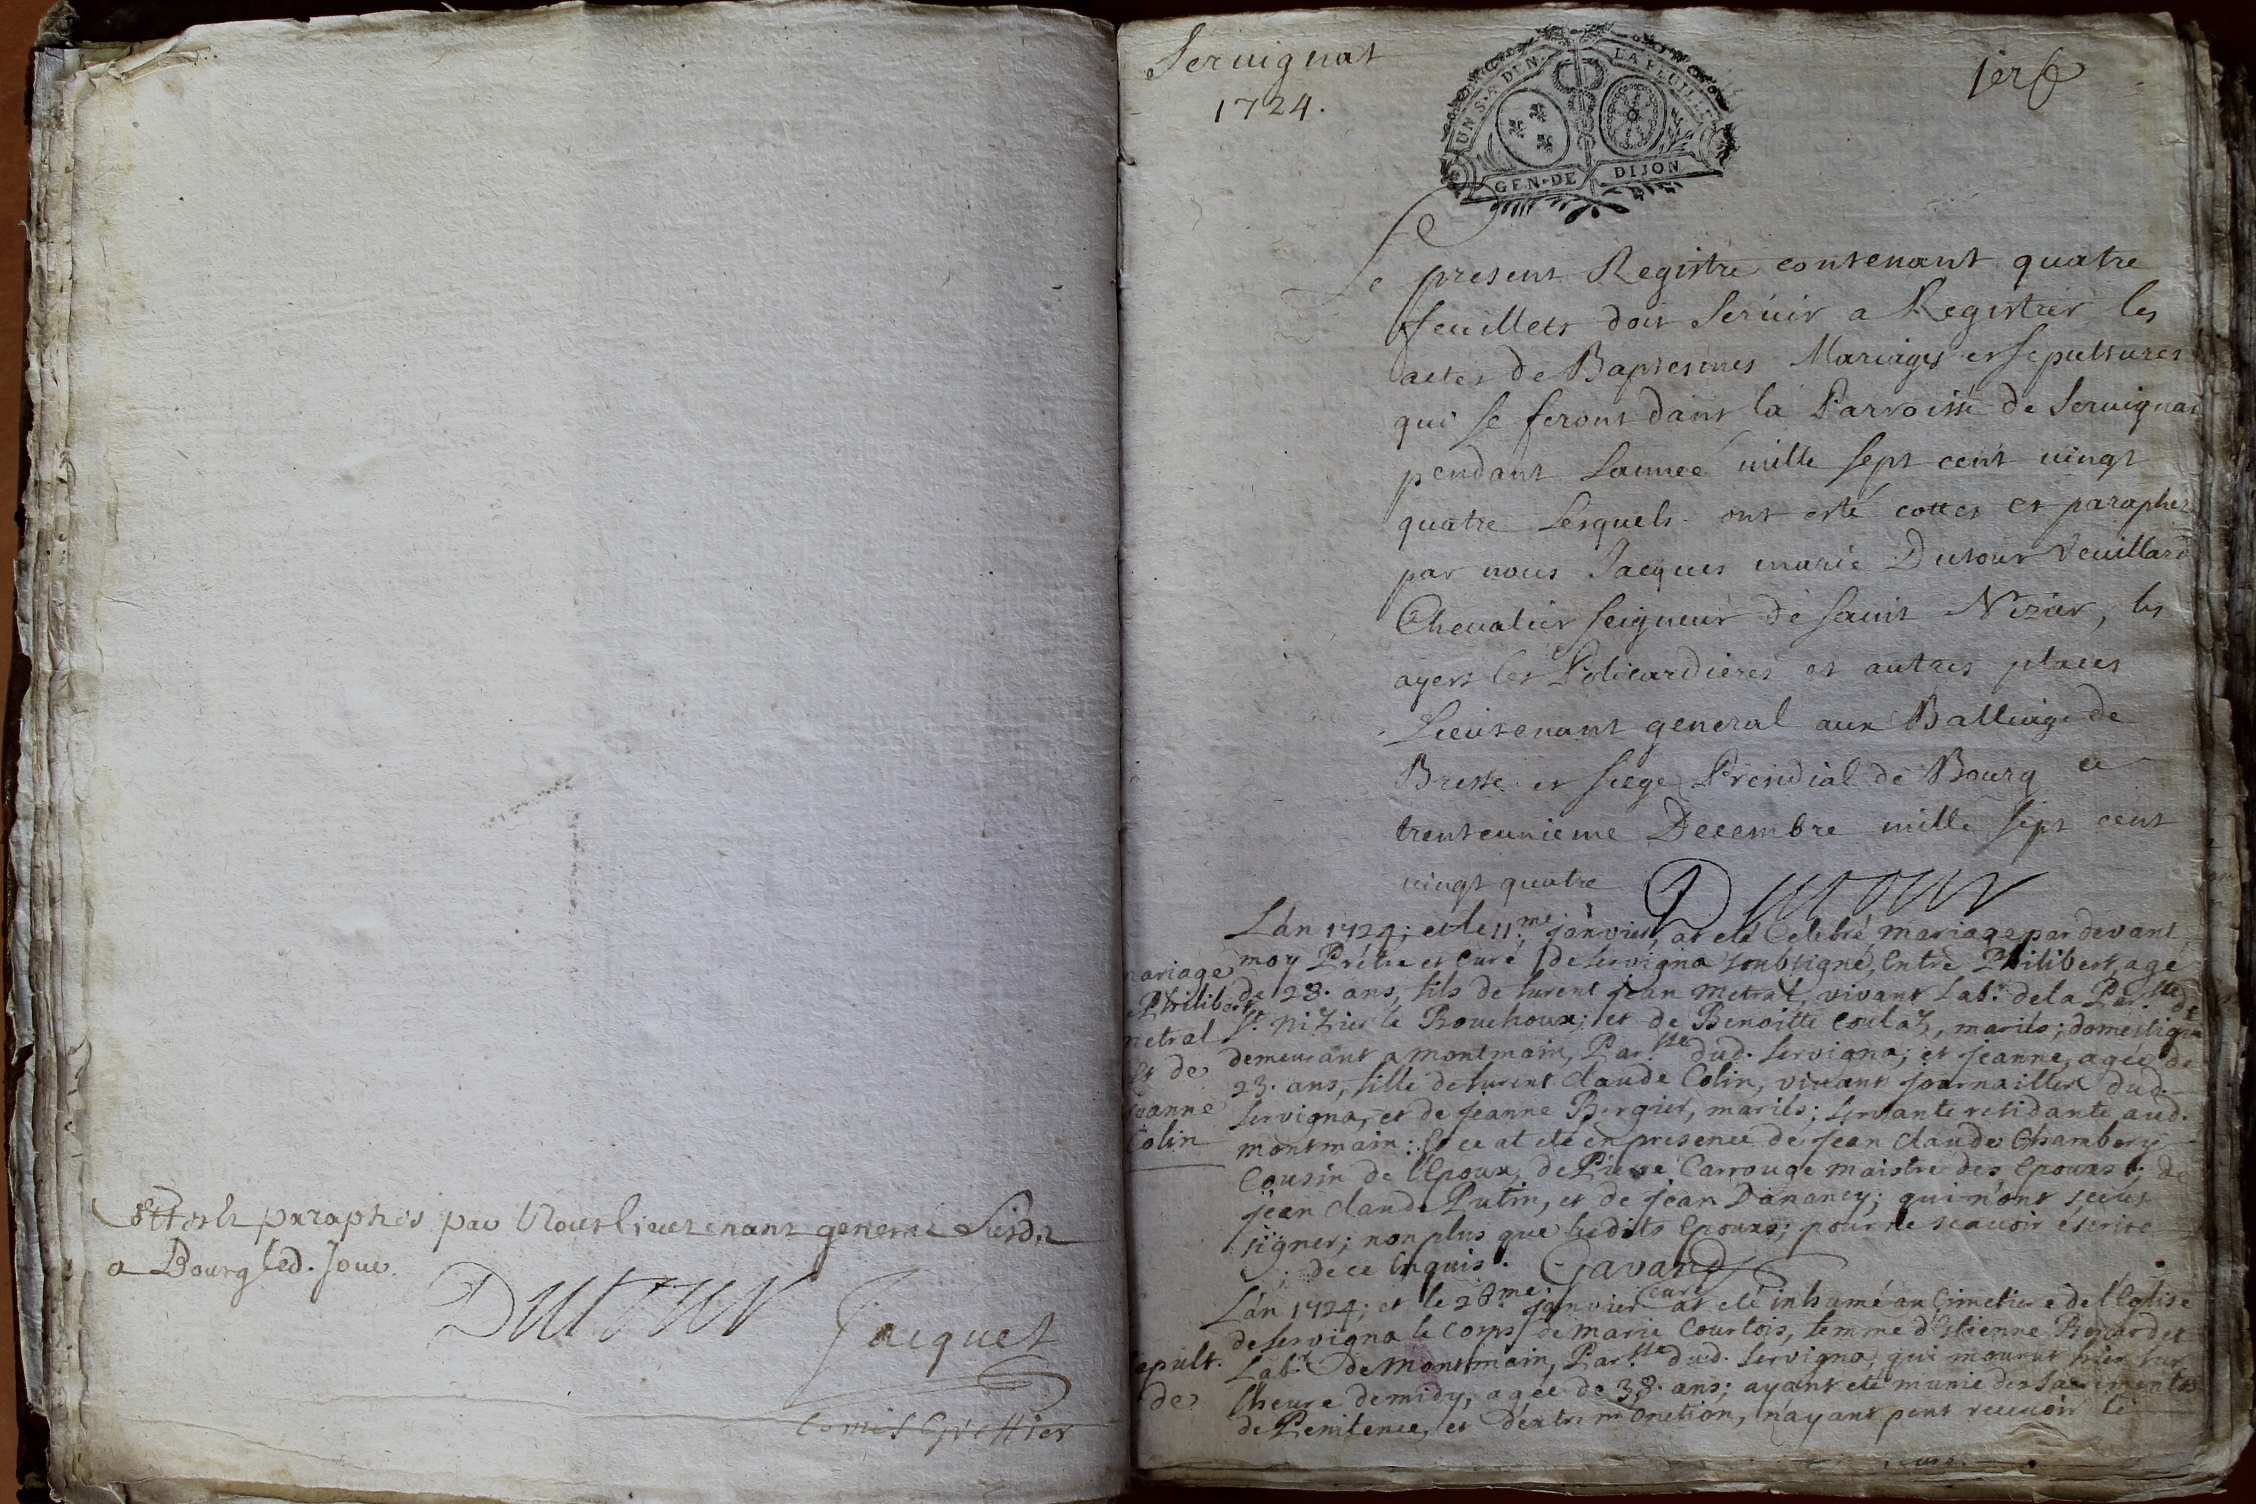 Cottes et paraphes par Nous lieutenant general susdit
a Bourg led. jour
Dutour
Jacquet
comis Greffier
Servignat
1724.
1er f
UN S. DUN. LA FEUILLE
GEN. DE DIJON
Le present Registre contenant quatre
feuillets doit servir a Registrer les
actes de Baptesmes Mariages et sepultures
qui se feront dans la Parroisse de Servignat
pendant Lannee mille sept cent vingt
quatre Lesquels ont esté cottes et paraphez
par nous Jacques marie Dutour Veuillard
Chevalier seigneur de saint Nizier, les
ayers les Policardieres et autres places
Lieutenant general aux Balliage de
Bresse et siege Presidial de Bourg ce
trenteunieme Decembre mille sept cent
vingt quatre Dutour
Mariage
Philibert
metral
et de
jeanne
Colin
L'án 1724; et le 11.me jánvier, at eté Celebré mariage par devant
moy Prêtre et curé de servigna soubsigné, Entre Philibert, agé
de 28. ans, fils de furent jean metral, vivant Lab.r de la Par.sse de
St. Nizier le Bouchoux; et de Benoitte Coulaz, mariés; domestique
demeurant a montmain, Par.sse dud. servigna; et jeanne, agée de
23. ans, fille de furent Claude Colin, vivant journaillier dud.
servigna, et de jeanne Bergier, mariés; servante residante aud.
montmain: Et ce at eté en presence de jean Claude Chambery
Cousin de l'Epoux, de Pierre Carrouge maistre des Epouxs; de
jean Claude Putin, et de jean Danancy; qui n'ont sceus
signer; non plus que lesdits Epouxs; pour ne scavoir escrire
de ce Enquis. Gavand
curé
sepult.
de
L'án 1724; et le 28.me janvier at eté inhumé au Cimetiere de l'Eglise
de servigna le corps de marie Courtois, femme d'Estienne Renardet
Lab.r de montmain, Par.sse dud. servigna; qui mourut hier sur
l'heure de midy, agée de 38. ans; ayant eté munie des sacrements
de Penitence, et d'extrem'Onction, n'ayant peut recevoir le